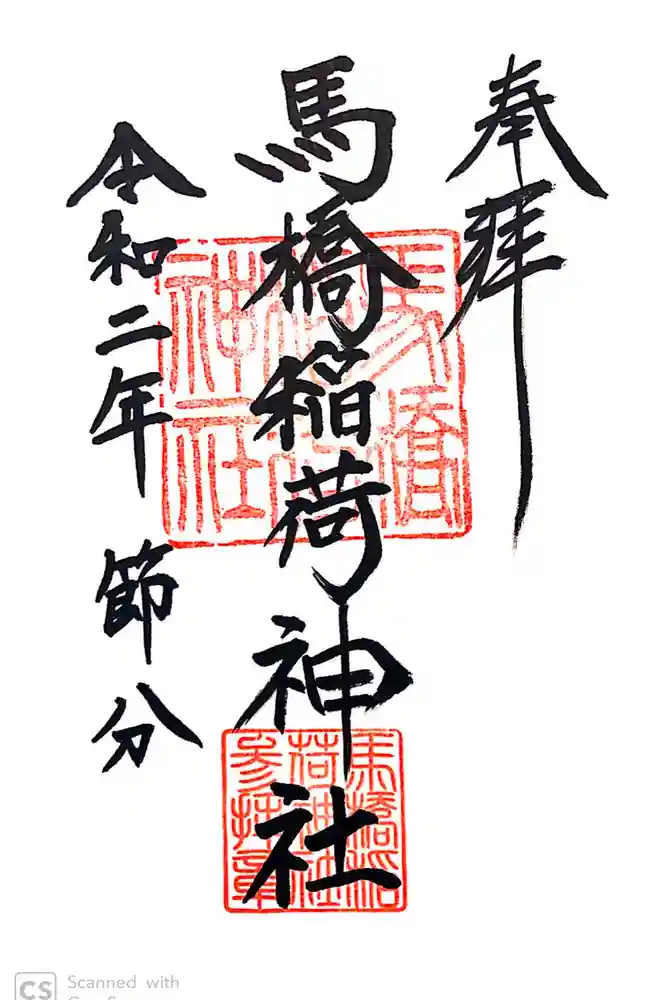 奉拝
馬橋稲荷神社
馬橋稲荷神社
馬橋稲荷神社参拝章
令和二年 節分
CS Scanned with